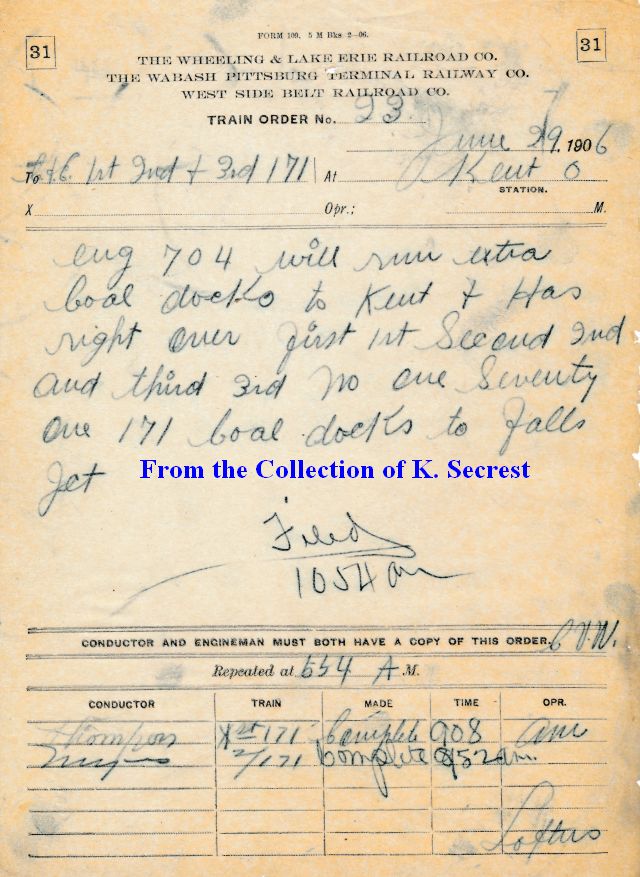 FORM 109. 5 M Bks 2–06.
31 31
THE WHEELING & LAKE ERIE RAILROAD CO.
THE WABASH PITTSBURG TERMINAL RAILWAY CO.
WEST SIDE BELT RAILROAD CO.
TRAIN ORDER No. 23
June 29, 1906
To C&E 1st 2nd & 3rd 171 At Kent O
STATION.
X Opr.; M.
eng 704 will run extra
Coal docks to Kent & Has
right over first 1st Second 2nd
and third 3rd No one Seventy
one 171 Coal docks to Falls
Jct
From the Collection of K. Secrest
Filed
1054 am
CONDUCTOR AND ENGINEMAN MUST BOTH HAVE A COPY OF THIS ORDER.
Repeated at 554 A M.
CONDUCTOR TRAIN MADE TIME OPR.
Thompson 1st 171 Complete 908 am
2/171 Complete 952 am.
Loftus